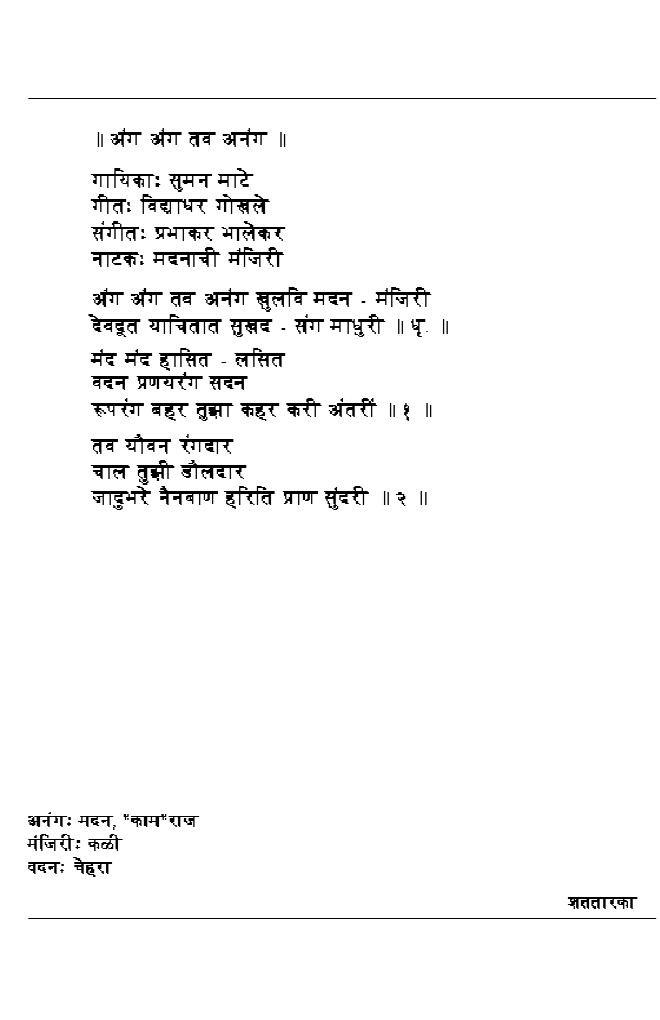 ॥ अंग अंग तव अनंग ॥
गायिकाः सुमन माटे
गीतः विद्याधर गोखले
संगीतः प्रभाकर भालेकर
नाटकः मदनाची मंजिरी
अंग अंग तव अनंग खुलवि मदन - मंजिरी
देवदूत याचितात सुखद - संग माधुरी ॥ धृ. ॥
मंद मंद हासित - लसित
वदन प्रणयरंग सदन
रूपरंग बहर तुझा कहर करी अंतरीं ॥ १ ॥
तव यौवन रंगदार
चाल तुझी डौलदार
जादुभरे नैनबाण हरिति प्राण सुंदरी ॥ २ ॥
अनंगः मदन, "काम"राज
मंजिरीः कळी
वदनः चेहरा
शततारका